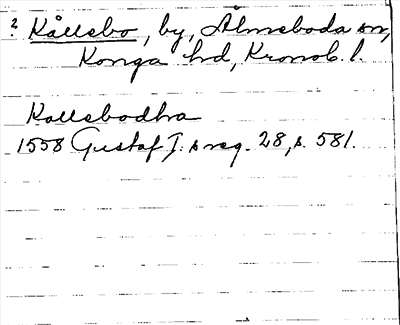 ? Kållsbo, by, Älmeboda sn,
Konga hd, Kronob. l.
Kallsbodhra
1558 Gustaf I:s reg. 28, s. 581.